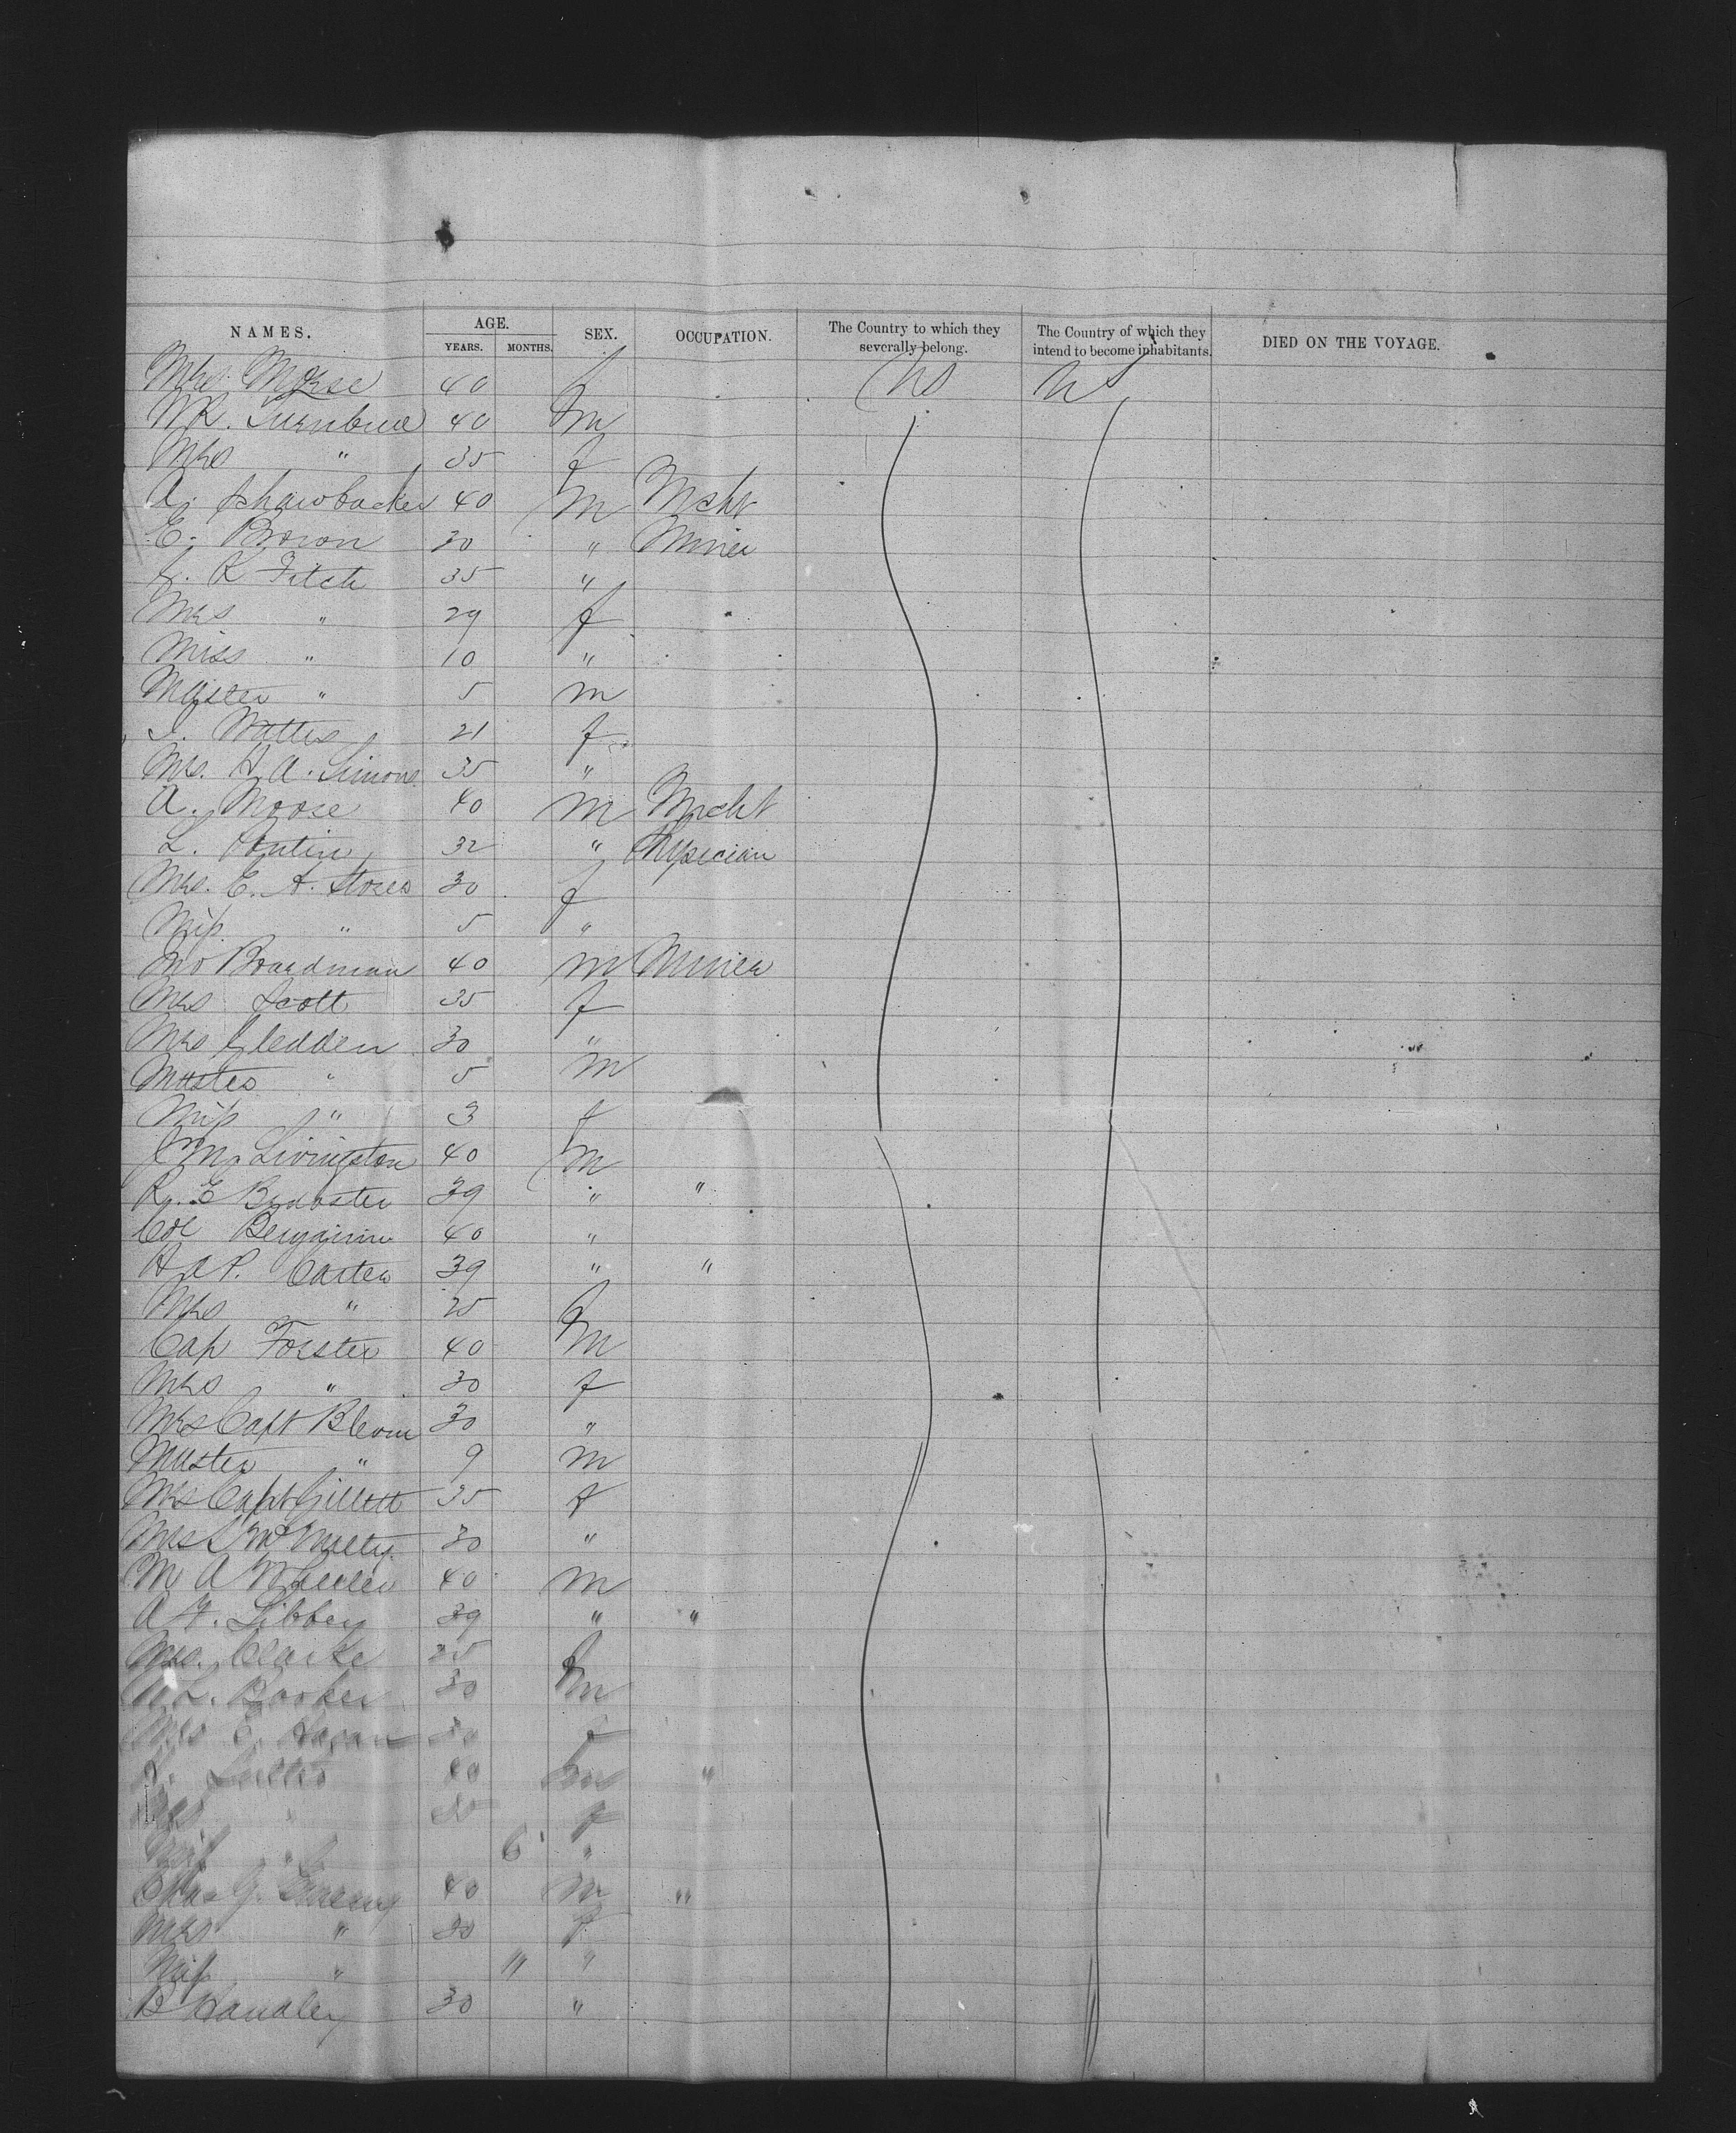 NAMES. AGE. SEX. OCCUPATION. The Country to which they severally belong. The Country of which they intend to become inhabitants. DIED ON THE VOYAGE.
YEARS. MONTHS.
Mrs. Morse 40 f US US
W R. Turnbull 40 m
Mrs " 35 f
A. Schawbacker 40 m Mcht
E. Brown 30 " Miner
K Fitch 35 "
Mrs " 29 f
Miss " 10 "
Master " 5 m
Watters 21 f
Mrs. H. A. Simons 35 "
A. Moose 40 m Mcht
L. 32 " Physician
Mrs. E. A. 30 f
Miss " 5 "
Boardman 40 m Miner
Mrs Scott 35 f
Mrs Gledden 30 "
Master " 5 m
Miss " 3 f
J M. Livingston 40 m
R. E Brewster 39 " "
Col Benjamin 40 "
H A P. Carter 39 " "
Mrs " 25 f
Cap Forster 40 m
Mrs " 30 f
Mrs Capt 30 "
Master " 9 m
Mrs Capt Gillett 35 f
Mrs McNulty 30 "
M A Wheeler 40 m
A F. Libbey 39 " "
Mrs. Clarke 25 f
L. Booker 30 m
Mrs E. 30 f
40 m "
Mrs " f
Miss " 6 "
Chas G. 40 m "
Mrs " 30 f
Miss " 11 "
B Handley 30 "